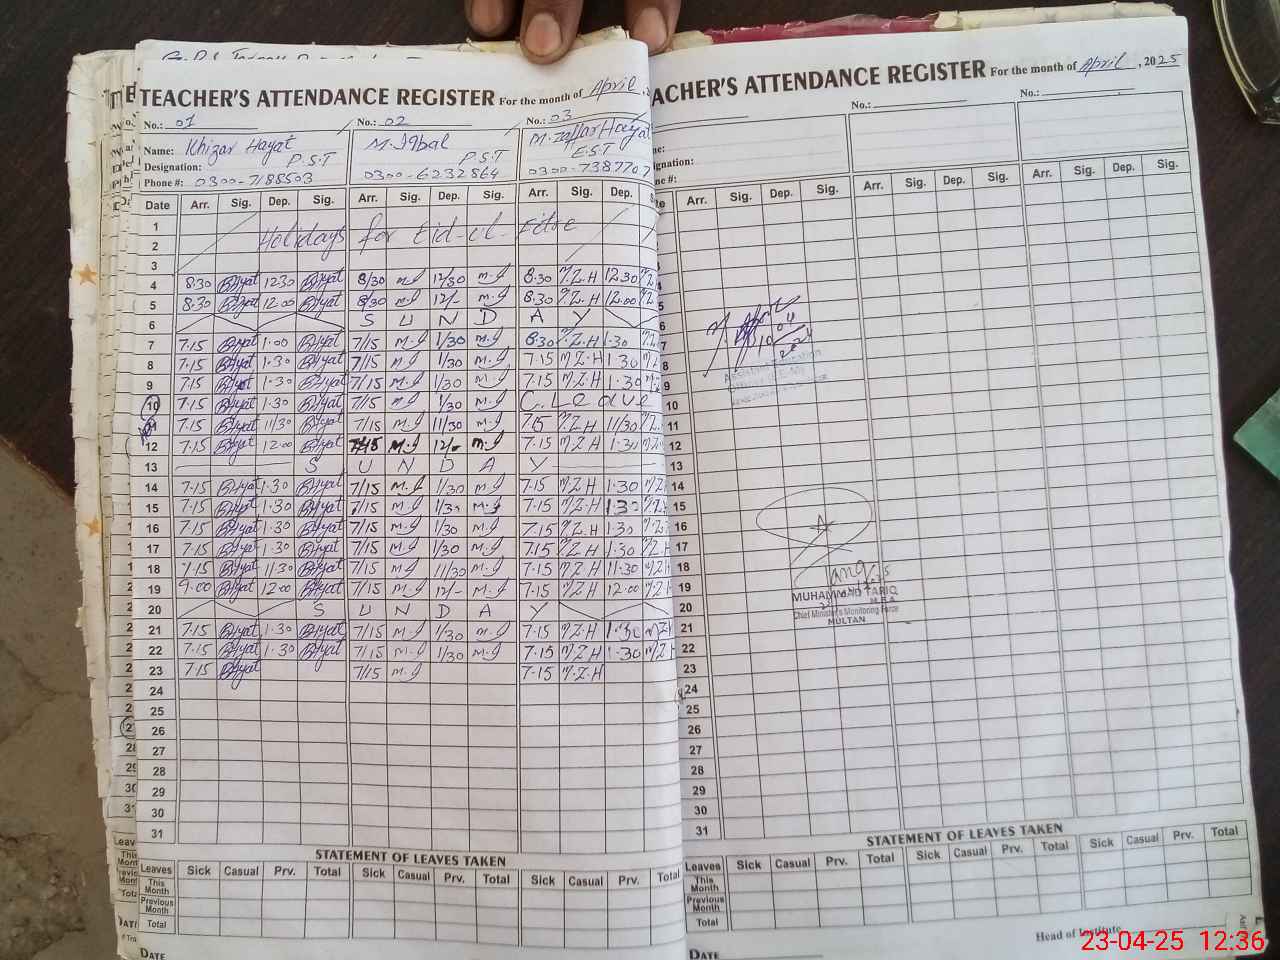 TEACHER'S ATTENDANCE REGISTER For the month of April
No.: 01 No.: 02 No.: 03
Name: Khizar Hayat M. Iqbal M. Zaffar Hayat
Designation: P.S.T P.S.T E.S.T
Phone #: 0300-7188503 0300-6232864 0300-7387707
Date Arr. Sig. Dep. Sig. Arr. Sig. Dep. Sig. Arr. Sig. Dep. S
1
2 Holidays for Eid-ul-Fitre
3
4 8:30 Hyat 12:30 Hyat 8/30 M.I 12/30 M.I 8.30 M.Z.H 12.30 M.Z
5 8:30 Hyat 12:00 Hyat 8/30 M.I 12/- M.I 8.30 M.Z.H 12.00 M.Z
6 S U N D A Y
7 7.15 Hyat 1.00 Hyat 7/15 M.I 1/30 M.I 8.30 M.Z.H 1.30 M.Z
8 7.15 Hyat 1.30 Hyat 7/15 M.I 1/30 M.I 7.15 M.Z.H 1.30 M.Z
9 7.15 Hyat 1.30 Hyat 7/15 M.I 1/30 M.I 7.15 M.Z.H 1.30 M.Z
10 7.15 Hyat 1.30 Hyat 7/15 M.I 1/30 M.I C. Leave
11 7.15 Hyat 11/30 Hyat 7/15 M.I 11/30 M.I 7.15 M.Z.H 11/30 M.Z
12 7.15 Hyat 12.00 Hyat 7/15 M.I 12/- M.I 7.15 M.Z.H 1.30 M.Z
13 S U N D A Y
14 7.15 Hyat 1.30 Hyat 7/15 M.I 1/30 M.I 7.15 M.Z.H 1.30 M.Z
15 7.15 Hyat 1.30 Hyat 7/15 M.I 1/30 M.I 7.15 M.Z.H 1.30 M.Z
16 7.15 Hyat 1.30 Hyat 7/15 M.I 1/30 M.I 7.15 M.Z.H 1.30 M.Z
17 7.15 Hyat 1.30 Hyat 7/15 M.I 1/30 M.I 7.15 M.Z.H 1.30 M.Z.H
18 7.15 Hyat 11.30 Hyat 7/15 M.I 11/30 M.I 7.15 M.Z.H 11.30 M.Z.H
19 9.00 Hyat 12.00 Hyat 7/15 M.I 12/- M.I 7.15 M.Z.H 12.00 M.Z.H
20 S U N D A Y
21 7.15 Hyat 1.30 Hyat 7/15 M.I 1/30 M.I 7.15 M.Z.H 1.30 M.Z.H
22 7.15 Hyat 1.30 Hyat 7/15 M.I 1/30 M.I 7.15 M.Z.H 1.30 M.Z.H
23 7.15 Hyat 7/15 M.I 7.15 M.Z.H
24
25
26
27
28
29
30
31
STATEMENT OF LEAVES TAKEN
Leaves Sick Casual Prv. Total Sick Casual Prv. Total Sick Casual Prv. Total
This Month
Previous Month
Total
DATE
ACHER'S ATTENDANCE REGISTER For the month of April, 2025
No.: No.:
me:
signation:
Phone #:
te Arr. Sig. Dep. Sig. Arr. Sig. Dep. Sig. Arr. Sig. Dep. Sig.
3
4
5
6
7
8
9
10
11
12
13
14
15
16
17
18
19
20
21
22
23
24
25
26
27
28
29
30
31
MUHAMMAD TARIQ
M.E.A
Chief Minister's Monitoring Force
MULTAN
STATEMENT OF LEAVES TAKEN
Leaves Sick Casual Prv. Total Sick Casual Prv. Total Sick Casual Prv. Total
This Month
Previous Month
Total
Head of Institute
DATE
23-04-25 12:36